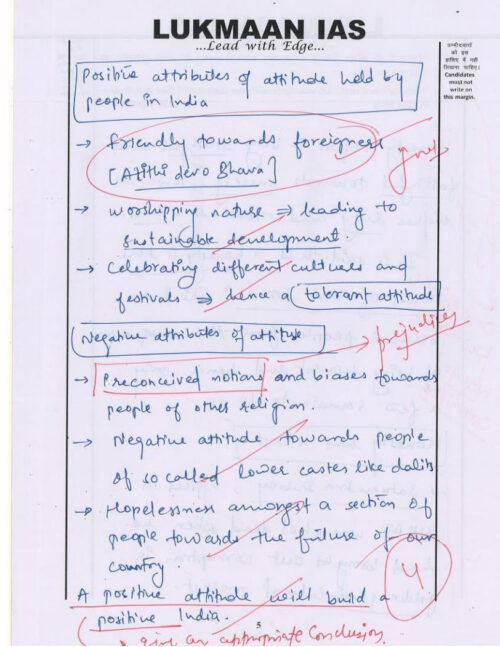 LUKMAAN IAS
...Lead with Edge...
उम्मीदवारों
को इस
हाशिए में नहीं
लिखना चाहिए।
Candidates
must not
write on
this margin.
Positive attributes of attitude held by
people in India
→ friendly towards foreigners
[Atithi devo Bhava]
→ worshipping nature ⇒ leading to
sustainable development.
→ Celebrating different cultures and
festivals ⇒ hence a tolerant attitude
Negative attributes of attitude
→ prejudices
→ Preconceived notions and biases towards
people of other religion.
→ Negative attitude towards people
of so called lower castes like dalits
→ Hopelessness amongst a section of
people towards the future of our
country.
A positive attitude will build a
positive India.
4
5
give an appropriate conclusion.